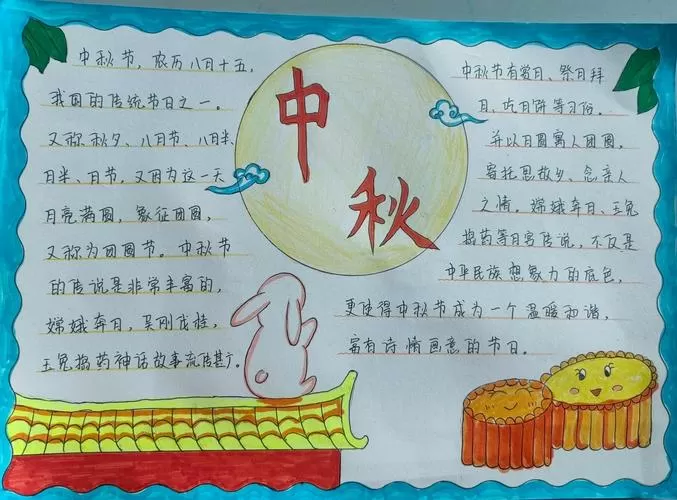 中秋
中秋节，农历八月十五，
我国的传统节日之一。
又称秋夕、八月节、八月半、
月半、月节，又因为这一天
月亮满圆，象征团圆，
又称为团圆节。中秋节
的传说是非常丰富的，
嫦娥奔月，吴刚伐桂，
玉兔捣药神话故事流传甚广。
中秋节有赏月、祭月拜
月、吃月饼等习俗。
并以月圆寓人团圆，
寄托思故乡、念亲人
之情。嫦娥奔月、玉兔
捣药等月宫传说，不仅是
中华民族想象力的底色，
更使得中秋节成为一个温暖和谐，
富有诗情画意的节日。